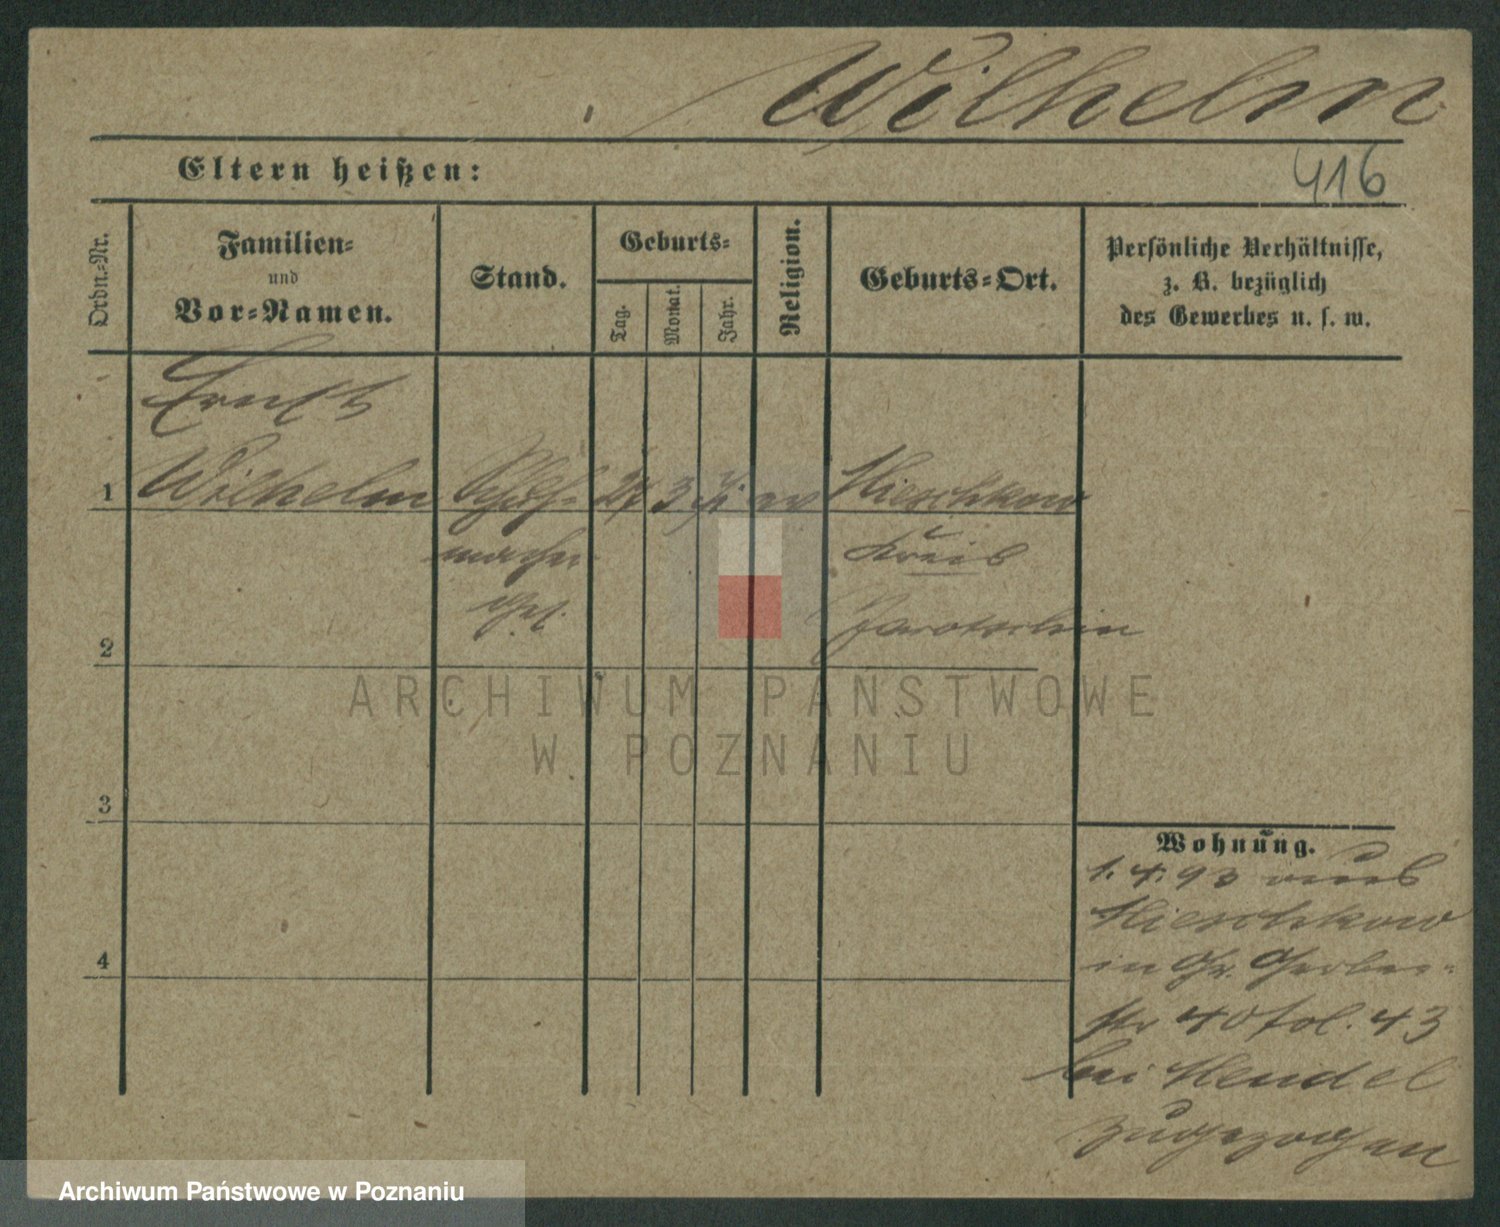 Wilhelm
416
Eltern heißen:
Ordn.=Nr.
Familien=
und
Vor=Namen.
Stand.
Geburts=
Tag.
Monat.
Jahr.
Religion.
Geburts=Ort.
Persönliche Verhältnisse,
z. B. bezüglich
des Gewerbes u. s. w.
Ernst
1 Wilhelm 3 ev
macher
Kreis
Jarotschin
2
3
4
Wohnung.
1. 4. 93 aus
in Gr. Gerber=
str 40 fol. 43
bei Hendel
zugezogen
ARCHIWUM PAŃSTWOWE
W POZNANIU
Archiwum Państwowe w Poznaniu